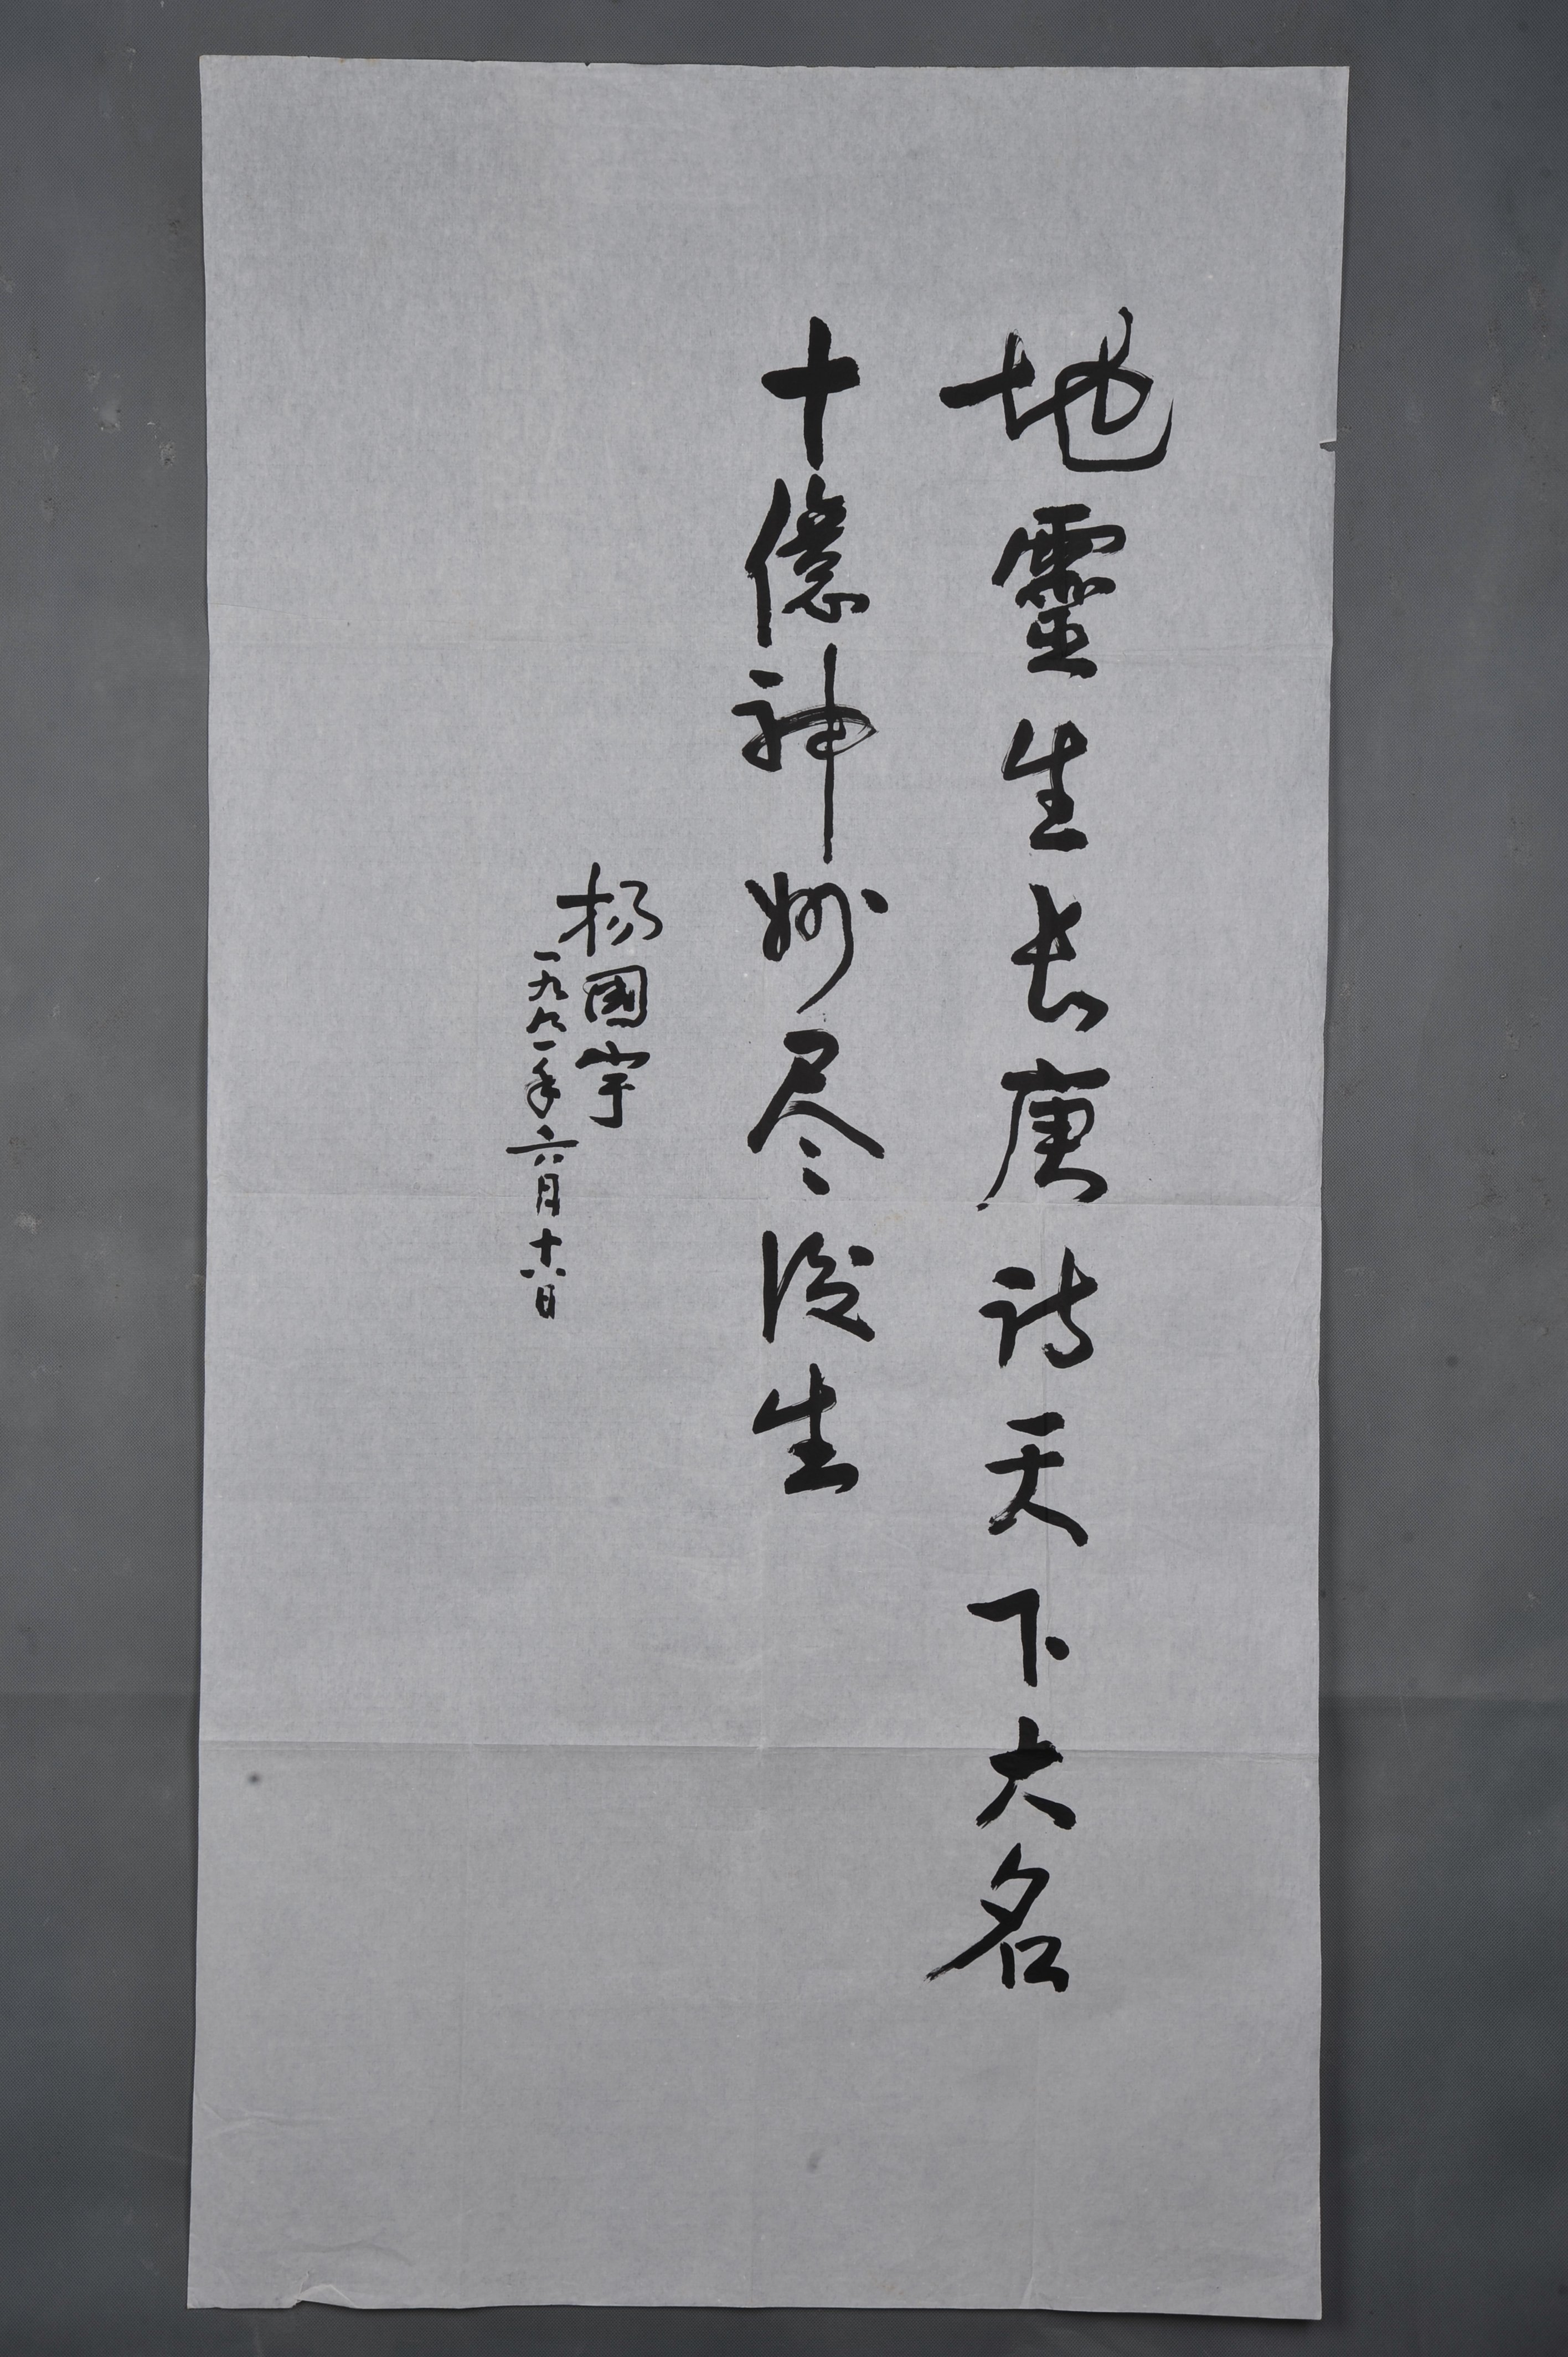 地靈生长庚诗天下大名
十億神州尽後生
杨國宇
一九九一年六月十六日